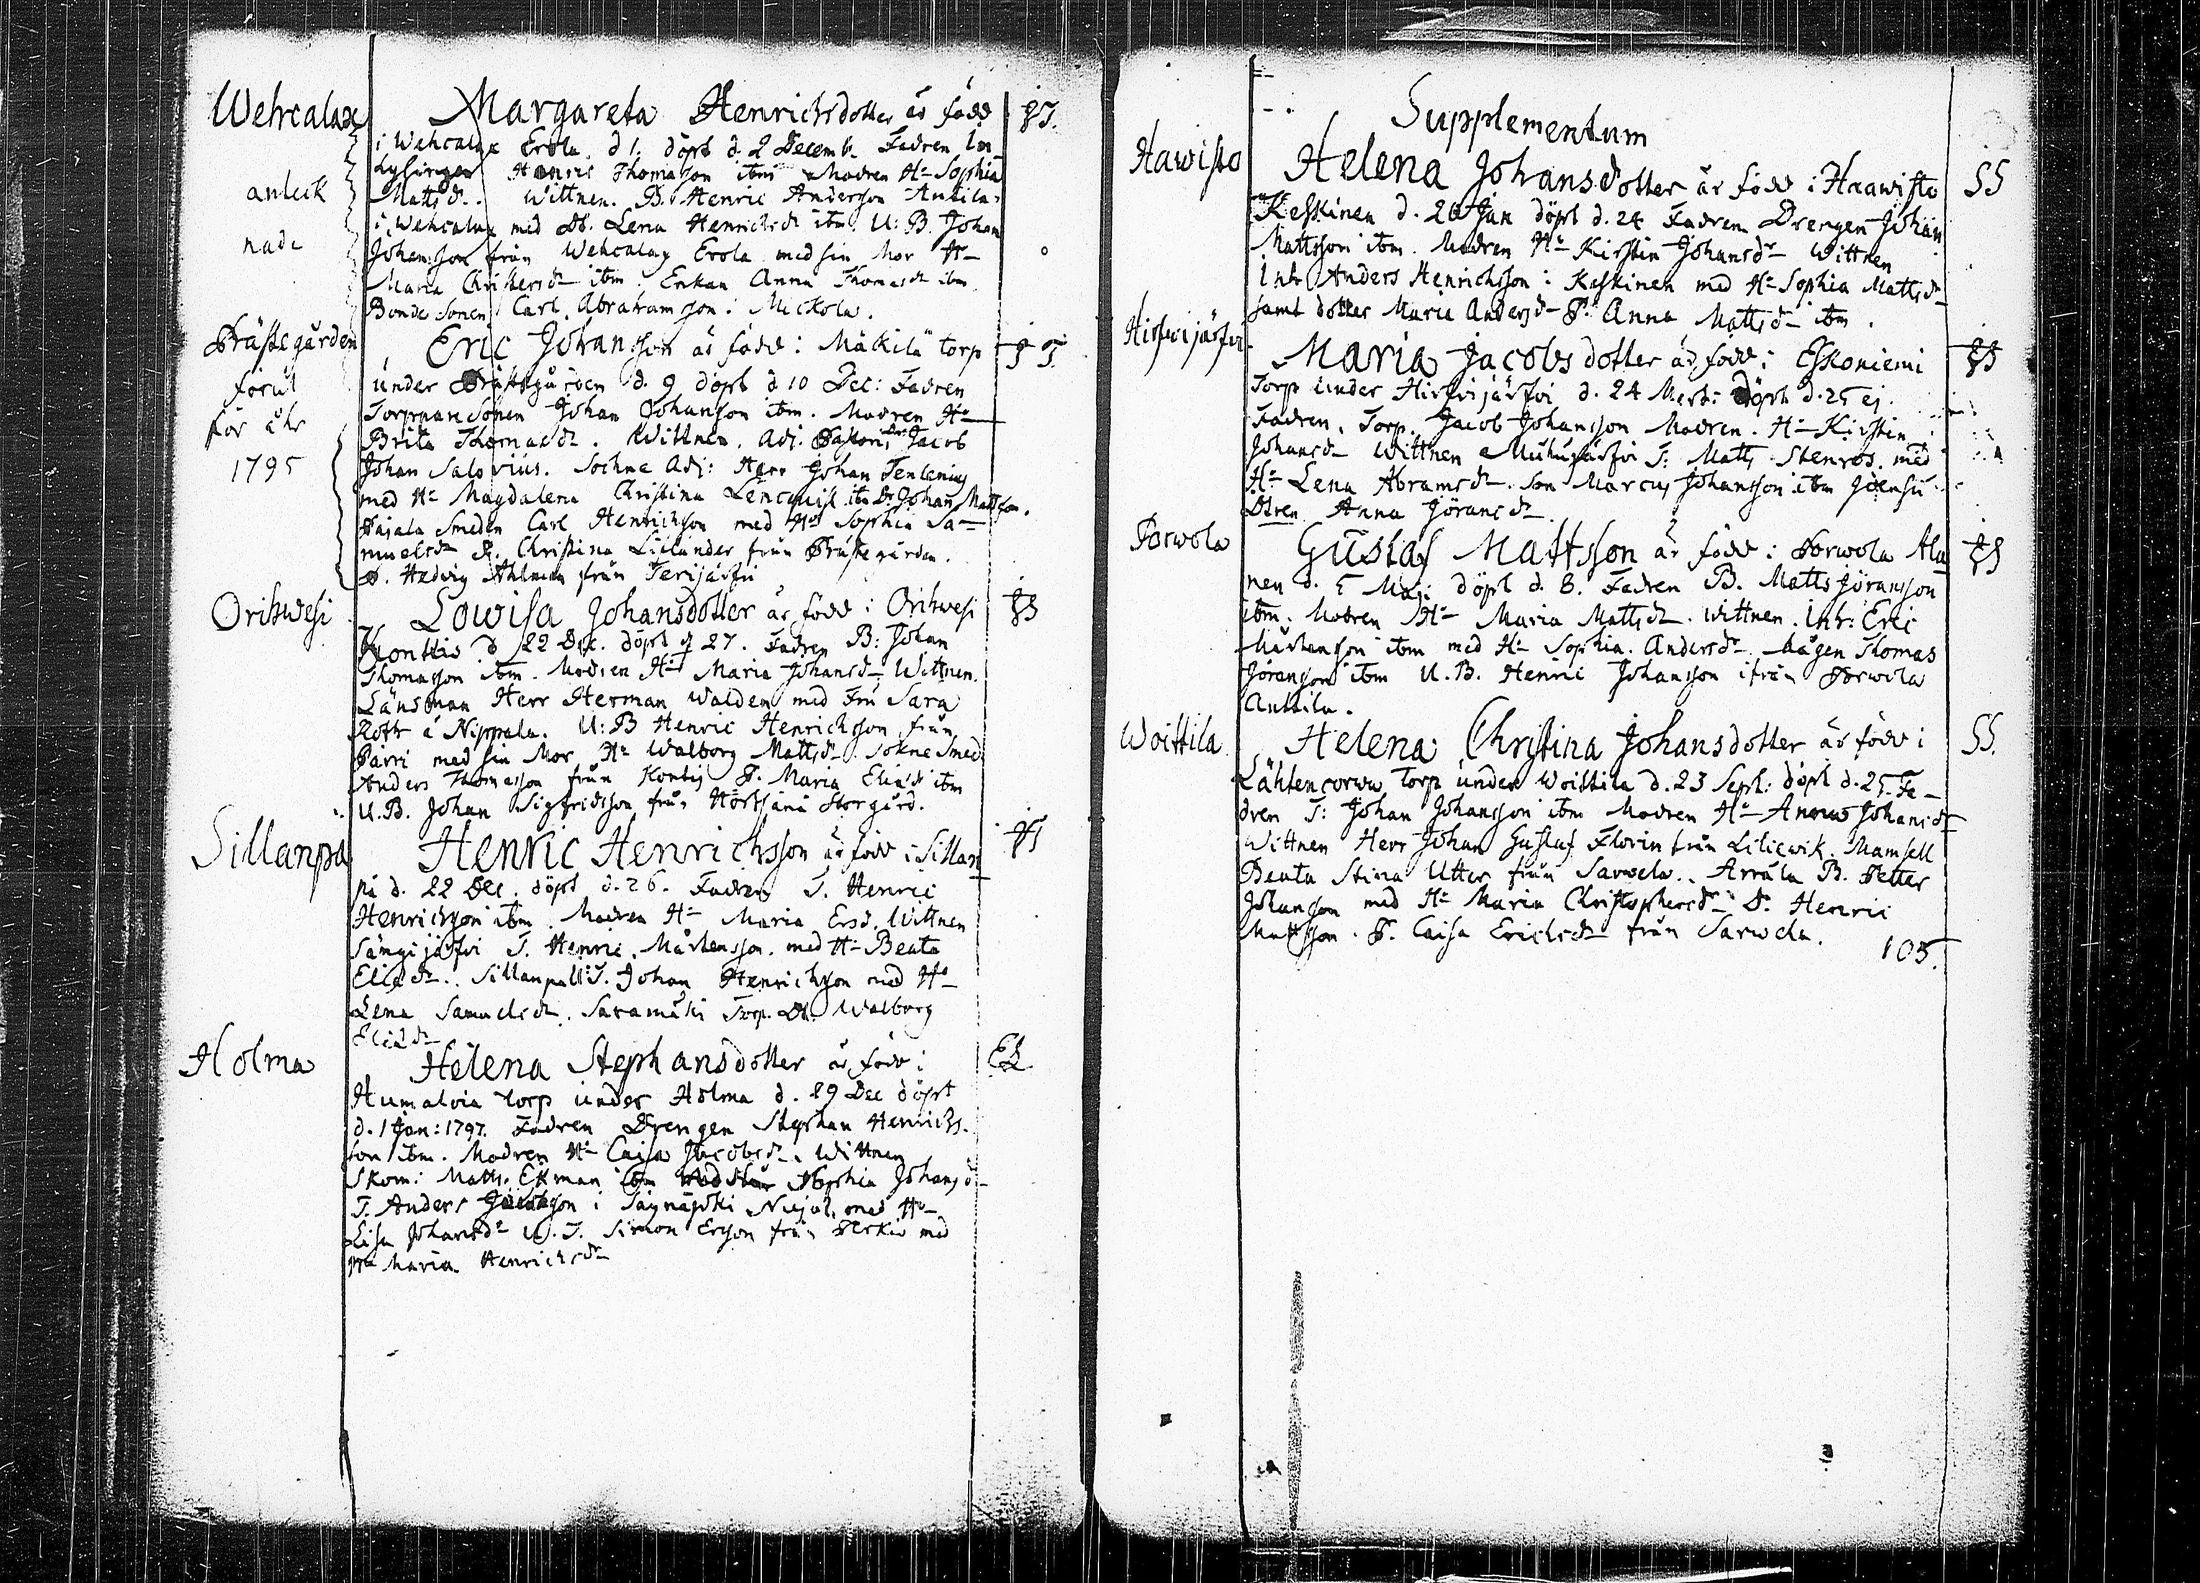 Wehcalax
anteck
nade
Margareta Henrichsdotter är född
i Wehcalax Erola d 1. döpt d. 2 Decemb. Fadren In-
hysingen Henric Thomasson ibm Modren Ha Sophia
Mattsdr. Wittnen. B. Henric Andersson Antila
i Wehcalax med D. Lena Henricsdr ibm. U: B. Johan
Johansson från Wehcalax Erola med sin Mor Ha
Maria Christersdr ibm. Enkan Anna Thomasdr ibm
Bonde Sonen Carl Abrahamsson: Mickola.
Prästegården
förut
för åhr
1795
Eric Johansson är född: Mäkilä torp
under Prästegården d. 9 döpt d 10 Dec: Fadren
Torparesonen Johan Johansson ibm. Modren Ha
Brita Thomasdr. Wittnen. Adj. Pastoris Hr Jacob
Johan Salovius. Sockne Adj: Herr Johan Tenlenius
med Ha Magdalena Christina Lencquist ibm Dr. Johan Mattsson.
Pajala Smeden Carl Henrichsson med Ha Sophia Sa-
muelsdr P. Christina Liilander från Prästegården.
P. Hedvig Ahlman från Terijärfvi
Orihwesi
Lowisa Johansdotter är född i Orihwesi
Konttis d 22 Dec. döpt d 27. Fadren B: Johan
Thomasson ibm. Modren Ha Maria Johansdr Wittnen.
Länsman Herr Herman Walden med Fru Sara
Roth å Nippala. U: B Henric Henrichsson från
Pärri med sin Mor Ha Walborg Mattsdr. Sockne Smed
Anders Thomasson från Kontis P. Maria Eliædr ibm
U. B. Johan Sigfridsson från Hörtsänä Storgård.
Sillanpä
Henric Henrichsson är född i Sillan
pä d. 22 Dec. döpt d. 26. Fadren T. Henric
Henrichsson ibm. Modren Ha Maria Ersd. Wittnen
Sängijärfvi T. Henric Mårtensson med Ha Beata
Eliædr. Sillanpää T. Johan Henrichsson med Ha
Lena Samuelsdr. Saramäki Torp. D. Walborg
Eliædr
Holma
Helena Stephansdotter är född i
Humaloia torp under Holma d. 29 Dec döpt
d. 1 Jan: 1797. Fadren Drengen Stephan Henrichs-
son ibm. Modren Ha Caisa Jacobsdr. Wittnen
Skom: Matts Ekman ibm Sophia Johansd
T. Anders i Säynäjoki Niejol. med Ha
Lisa Johansdr U. T. Simon Ersson från Perkiö med
Ha Maria Henrichsdr
Supplementum
Hawisto
Helena Johansdotter är född i Haawisto
Keskinen d. 20 Jan döpt d. 24 Fadren Drengen Johan
Mattsson ibm. Modren Ha Kirstin Johansdr Wittnen
Inh: Anders Henrichsson: Keskinen med Ha Sophia Mattsdr
samt dotter Maria Andersdr P. Anna Mattsdr ibm.
SS
Hirfvijärfvi
Maria Jacobsdotter är född: Eskoniemi
Torp under Hirfvijärfvi d. 24 Mert: Döpt d. 25 ej.
Fadren. Torp. Jacob Johansson Modren. Ha Kirstin
Johansdr Wittnen Muhujärfvi T: Matts Stenros. med
Ha Lena Abramsdr. Son Marcus Johansson ibm Joensu
Dtren Anna Jöransdr
Porwola
Gustaf Mattsson är född: Porwola Ala
nen d. 5 Maj: döpt d. 8. Fadren B. Matts Jöransson
ibm. Modren Ha Maria Mattsdr. Wittnen. Inh: Eric
Mårtensson ibm med Ha Sophia Andersdr. Mågen Thomas
Jöransson ibm U. B. Henric Johansson ifrån Porwola
Anttila.
Woittila
Helena Christina Johansdotter är född i
Lähtencorwa Torp under Woittila d. 23 Sept: döpt d. 25. Fa-
dren T: Johan Johansson ibm Modren Ha Anna Johansdr
Wittnen Herr Johan Gustaf Florin från Liliewik. Mamsell
Beata Stina Utter från Sarwela. Arräla B. Petter
Johansson med Ha Maria Christophersdr D. Henric
Mattsson. P. Caisa Erichsdr från Sarwela.
SS.
105.